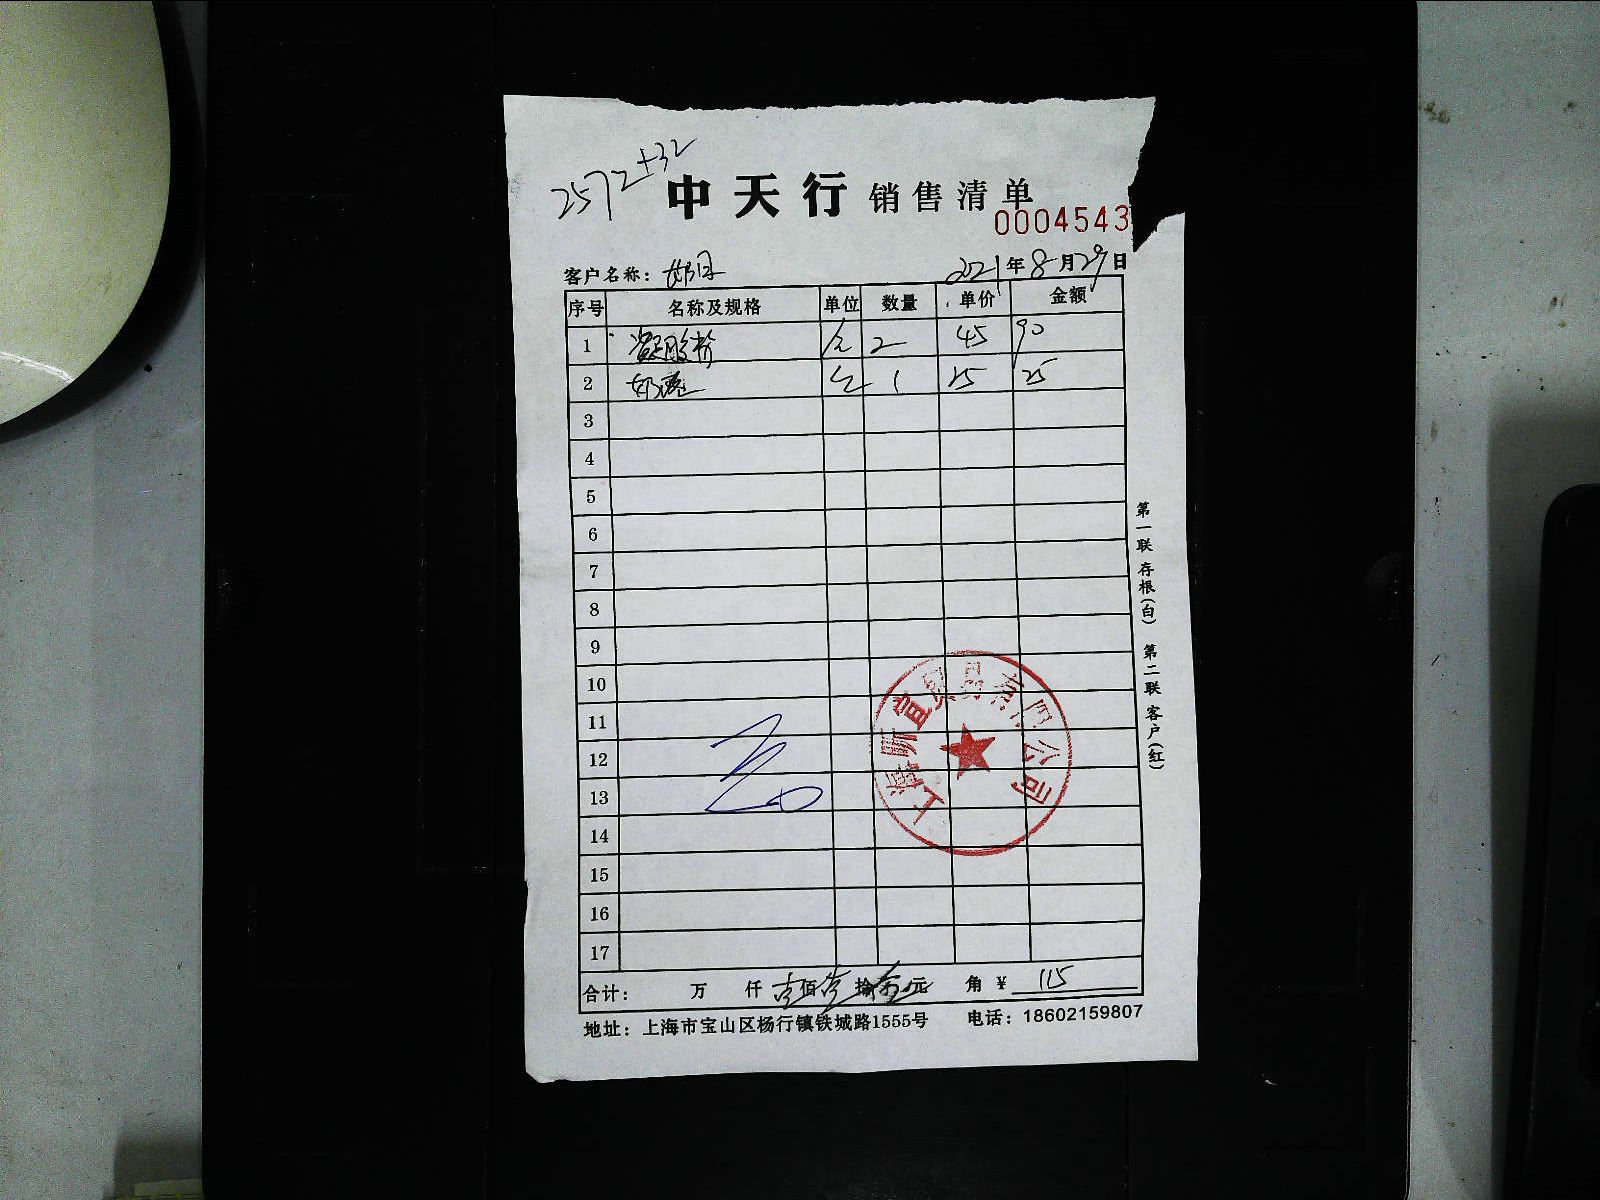 2572+32
中天行 销售清单
0004543
客户名称： 2021年8月29日
序号 名称及规格 单位 数量 单价 金额
1 2 45 90
2 1 25 25
3
4
5
6
7
8
9
10
11
12
13
14
15
16
17
上海昕宜贸易有限公司
合计： 万 仟 壹佰壹拾伍元 角 ¥ 115
地址：上海市宝山区杨行镇铁城路1555号 电话：18602159807
第一联 存根（白） 第二联 客户（红）